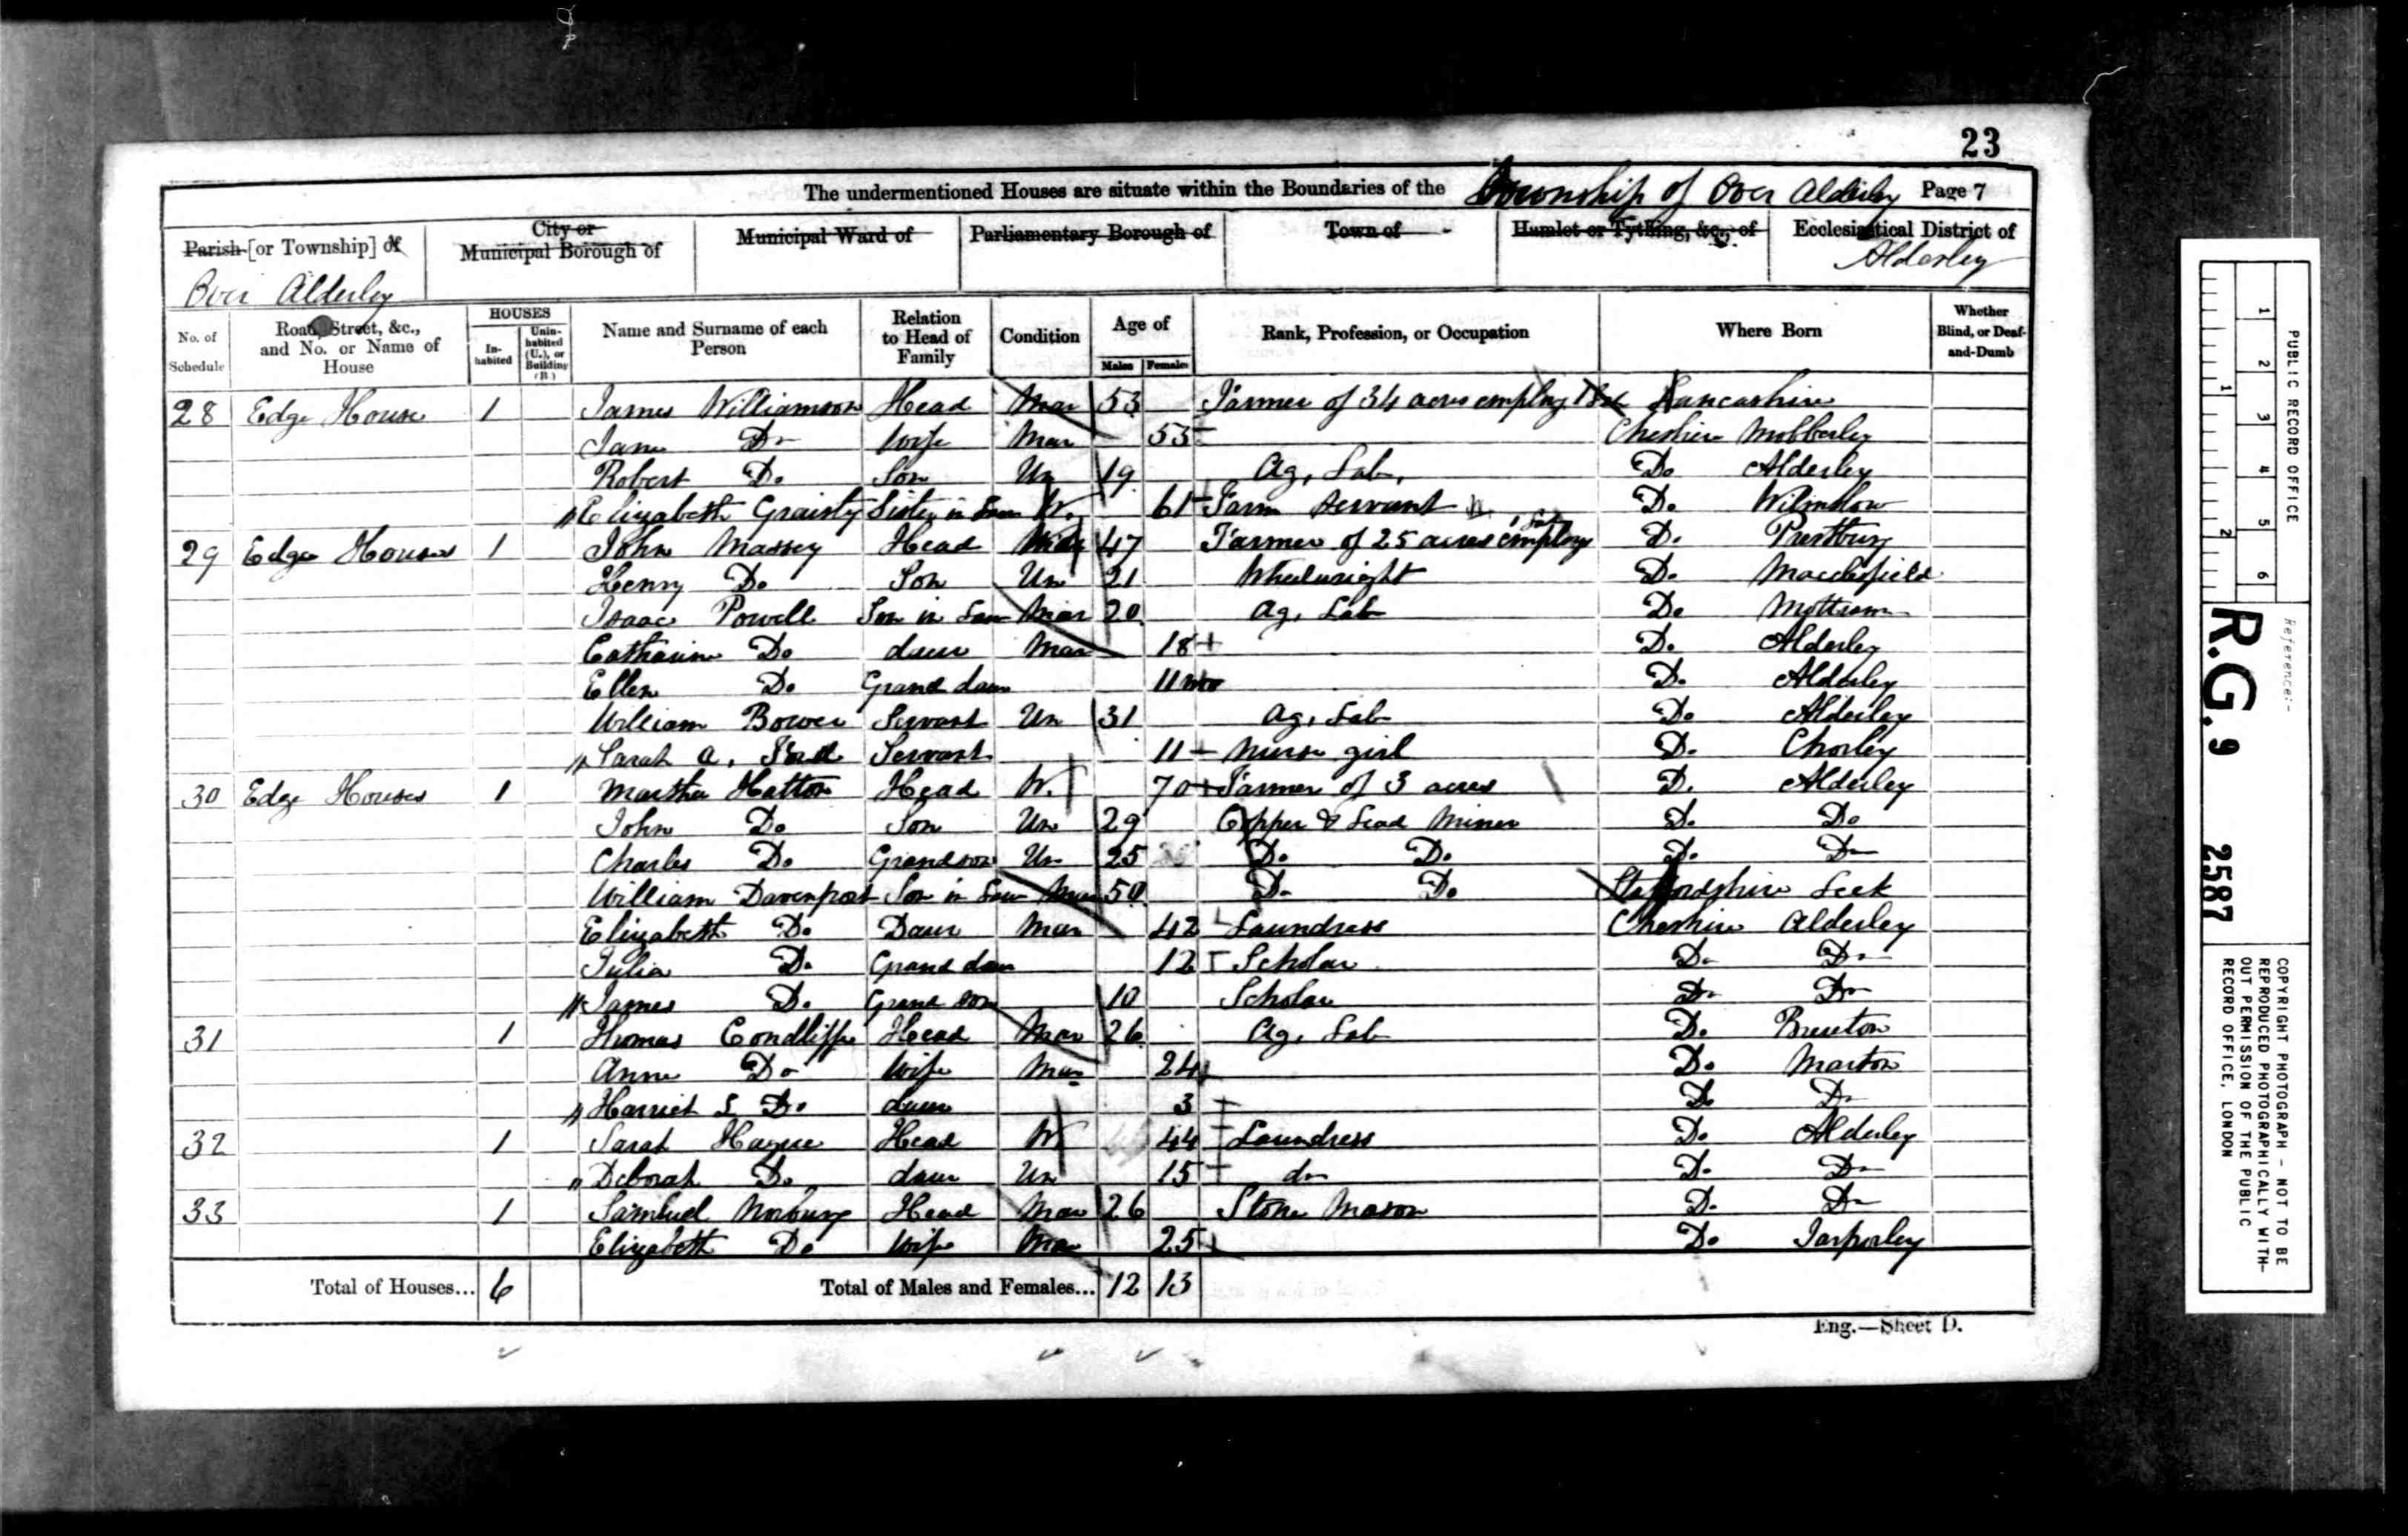 23
The undermentioned Houses are situate within the Boundaries of the Township of Over Alderley Page 7
Parish [or Township] of
Over Alderley
City or
Municipal Borough of
Municipal Ward of
Parliamentary Borough of
Town of
Hamlet or Tything, &c., of
Ecclesiastical District of
Alderley
No. of Schedule
Road, Street, &c., and No. or Name of House
HOUSES
In-habited
Unin-habited (U.), or Building (B.)
Name and Surname of each Person
Relation to Head of Family
Condition
Age of
Males Females
Rank, Profession, or Occupation
Where Born
Whether Blind, or Deaf-and-Dumb
28 Edge House 1 James Williamson Head Mar 53 Farmer of 34 acres employ Lancashire
Jane Do Wife Mar 53 Cheshire Mobberley
Robert Do Son Un 19 Ag. Lab. Do Alderley
Elizabeth Graisty Sister in Law W. 61 Farm Servant Do Wilmslow
29 Edge Houses 1 John Massey Head 47 Farmer of 25 acres employ Do Prestbury
Henry Do Son Un 21 Wheelwright Do Macclesfield
Isaac Powell Son in Law Mar 20 Ag. Lab Do Mottram
Catharine Do daur Mar 18 Do Alderley
Ellen Do Grand daur 11 mo Do Alderley
William Bower Servant Un 31 Ag. Lab Do Alderley
Sarah A. Servant 11 Nurse girl Do Chorley
30 Edge Houses 1 Martha Hatton Head W. 70 Farmer of 3 acres Do Alderley
John Do Son Un 29 Copper & Lead Miner Do Do
Charles Do Grandson Un 25 Do Do Do Do
William Davenport Son in Law Mar 50 Do Do Staffordshire Leek
Elizabeth Do Daur Mar 42 Laundress Cheshire Alderley
Julia Do Grand daur 12 Scholar Do Do
James Do Grand son 10 Scholar Do Do
31 1 Thomas Condliffe Head Mar 26 Ag. Lab Do
Anne Do Wife Mar 24 Do Marton
Harriet S Do daur 3 Do Do
32 1 Sarah Head W 44 Laundress Do Alderley
Deborah Do daur Un 15 do Do Do
33 1 Samuel Norbury Head Mar 26 Stone Mason Do Do
Elizabeth Do Wife Mar 25 Do Tarporley
Total of Houses... 6 Total of Males and Females... 12 13
Eng.—Sheet D.
PUBLIC RECORD OFFICE
1 2 3 4 5 6
1 2
Reference:-
R.G. 9 2587
COPYRIGHT PHOTOGRAPH - NOT TO BE
REPRODUCED PHOTOGRAPHICALLY WITH-
OUT PERMISSION OF THE PUBLIC
RECORD OFFICE, LONDON